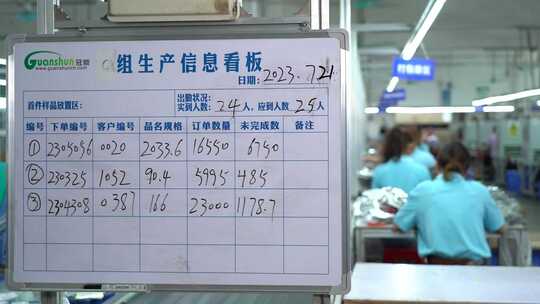 Guanshun 冠順
www.guanshunm.com
组生产信息看板
日期：2023.7.21
首件样品放置区：
出勤状况：
实到人数：24人，应到人数25人
编号 下单编号 客户编号 品名规格 订单数量 未完成数 备注
① 2305056 0020 2033.6 16550 6750
② 230325 1052 90.4 5995 485
③ 2304308 0387 166 23000 1178.7